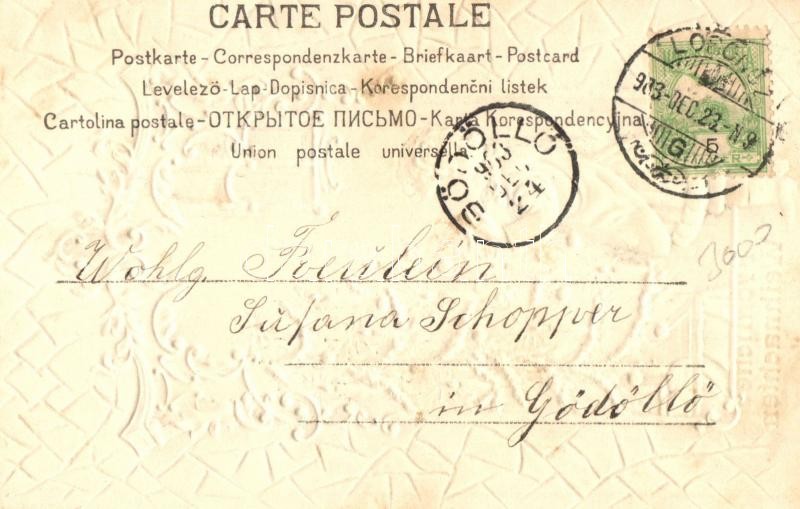 CARTE POSTALE
Postkarte - Correspondenzkarte - Briefkaart - Postcard
Levelező-Lap-Dopisnica - Korespondenční listek
Cartolina postale - ОТКРЫТОЕ ПИСЬМО - Karta Korespondencyjna
Union postale universelle
GÖDÖLLŐ
903
24
903-DEC.23.
5
3000
Wohlg. Freulein
Susana Schopper
in Gödöllő